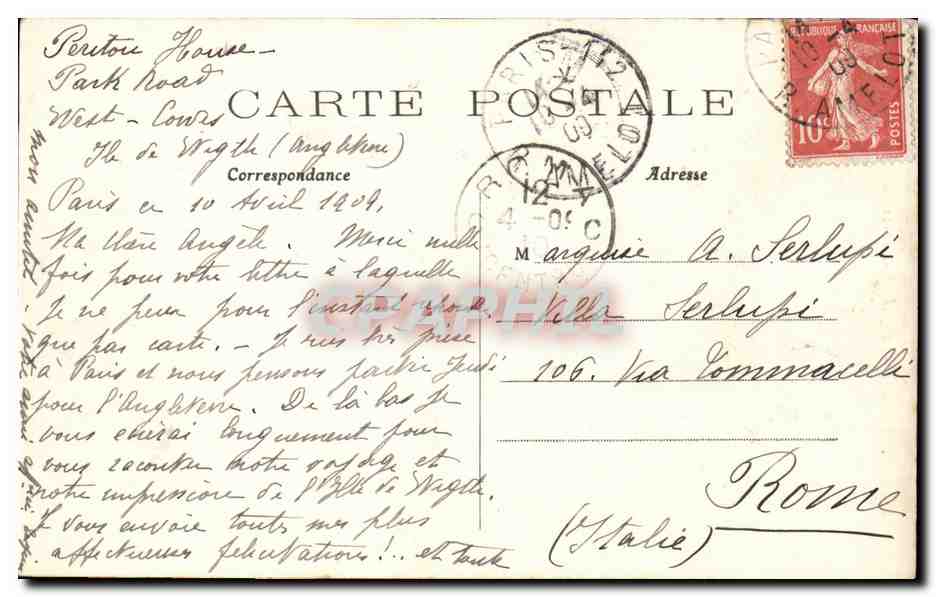 Periton House -
Park Road
West - Cowes
Ile de Wigth (Angleterre)
CARTE POSTALE
Correspondance
Adresse
Paris ce 10 Avril 1909.
Ma chère Angèle. Merci mille
fois pour votre lettre à laquelle
Je ne peux pour l'instant
que par carte. - Je suis très prise
à Paris et nous pensons partir Jeudi
pour l'Angleterre. De là bas Je
vous écrirai longuement pour
vous raconter notre voyage et
notre impression de l'Ile de Wigth.
Je vous envoie toutes mes plus
affectueuses félicitations!.. et toute
mon amitié. Votre amie
Marquise A. Serlupi
Villa Serlupi
106. Via Tommacelli
Rome
(Italie)
REPUBLIQUE FRANCAISE
10c
POSTES
PARIS 112
R. AMELOT
ROMA
12
4 - 09
CENTRO
CPAPHIL